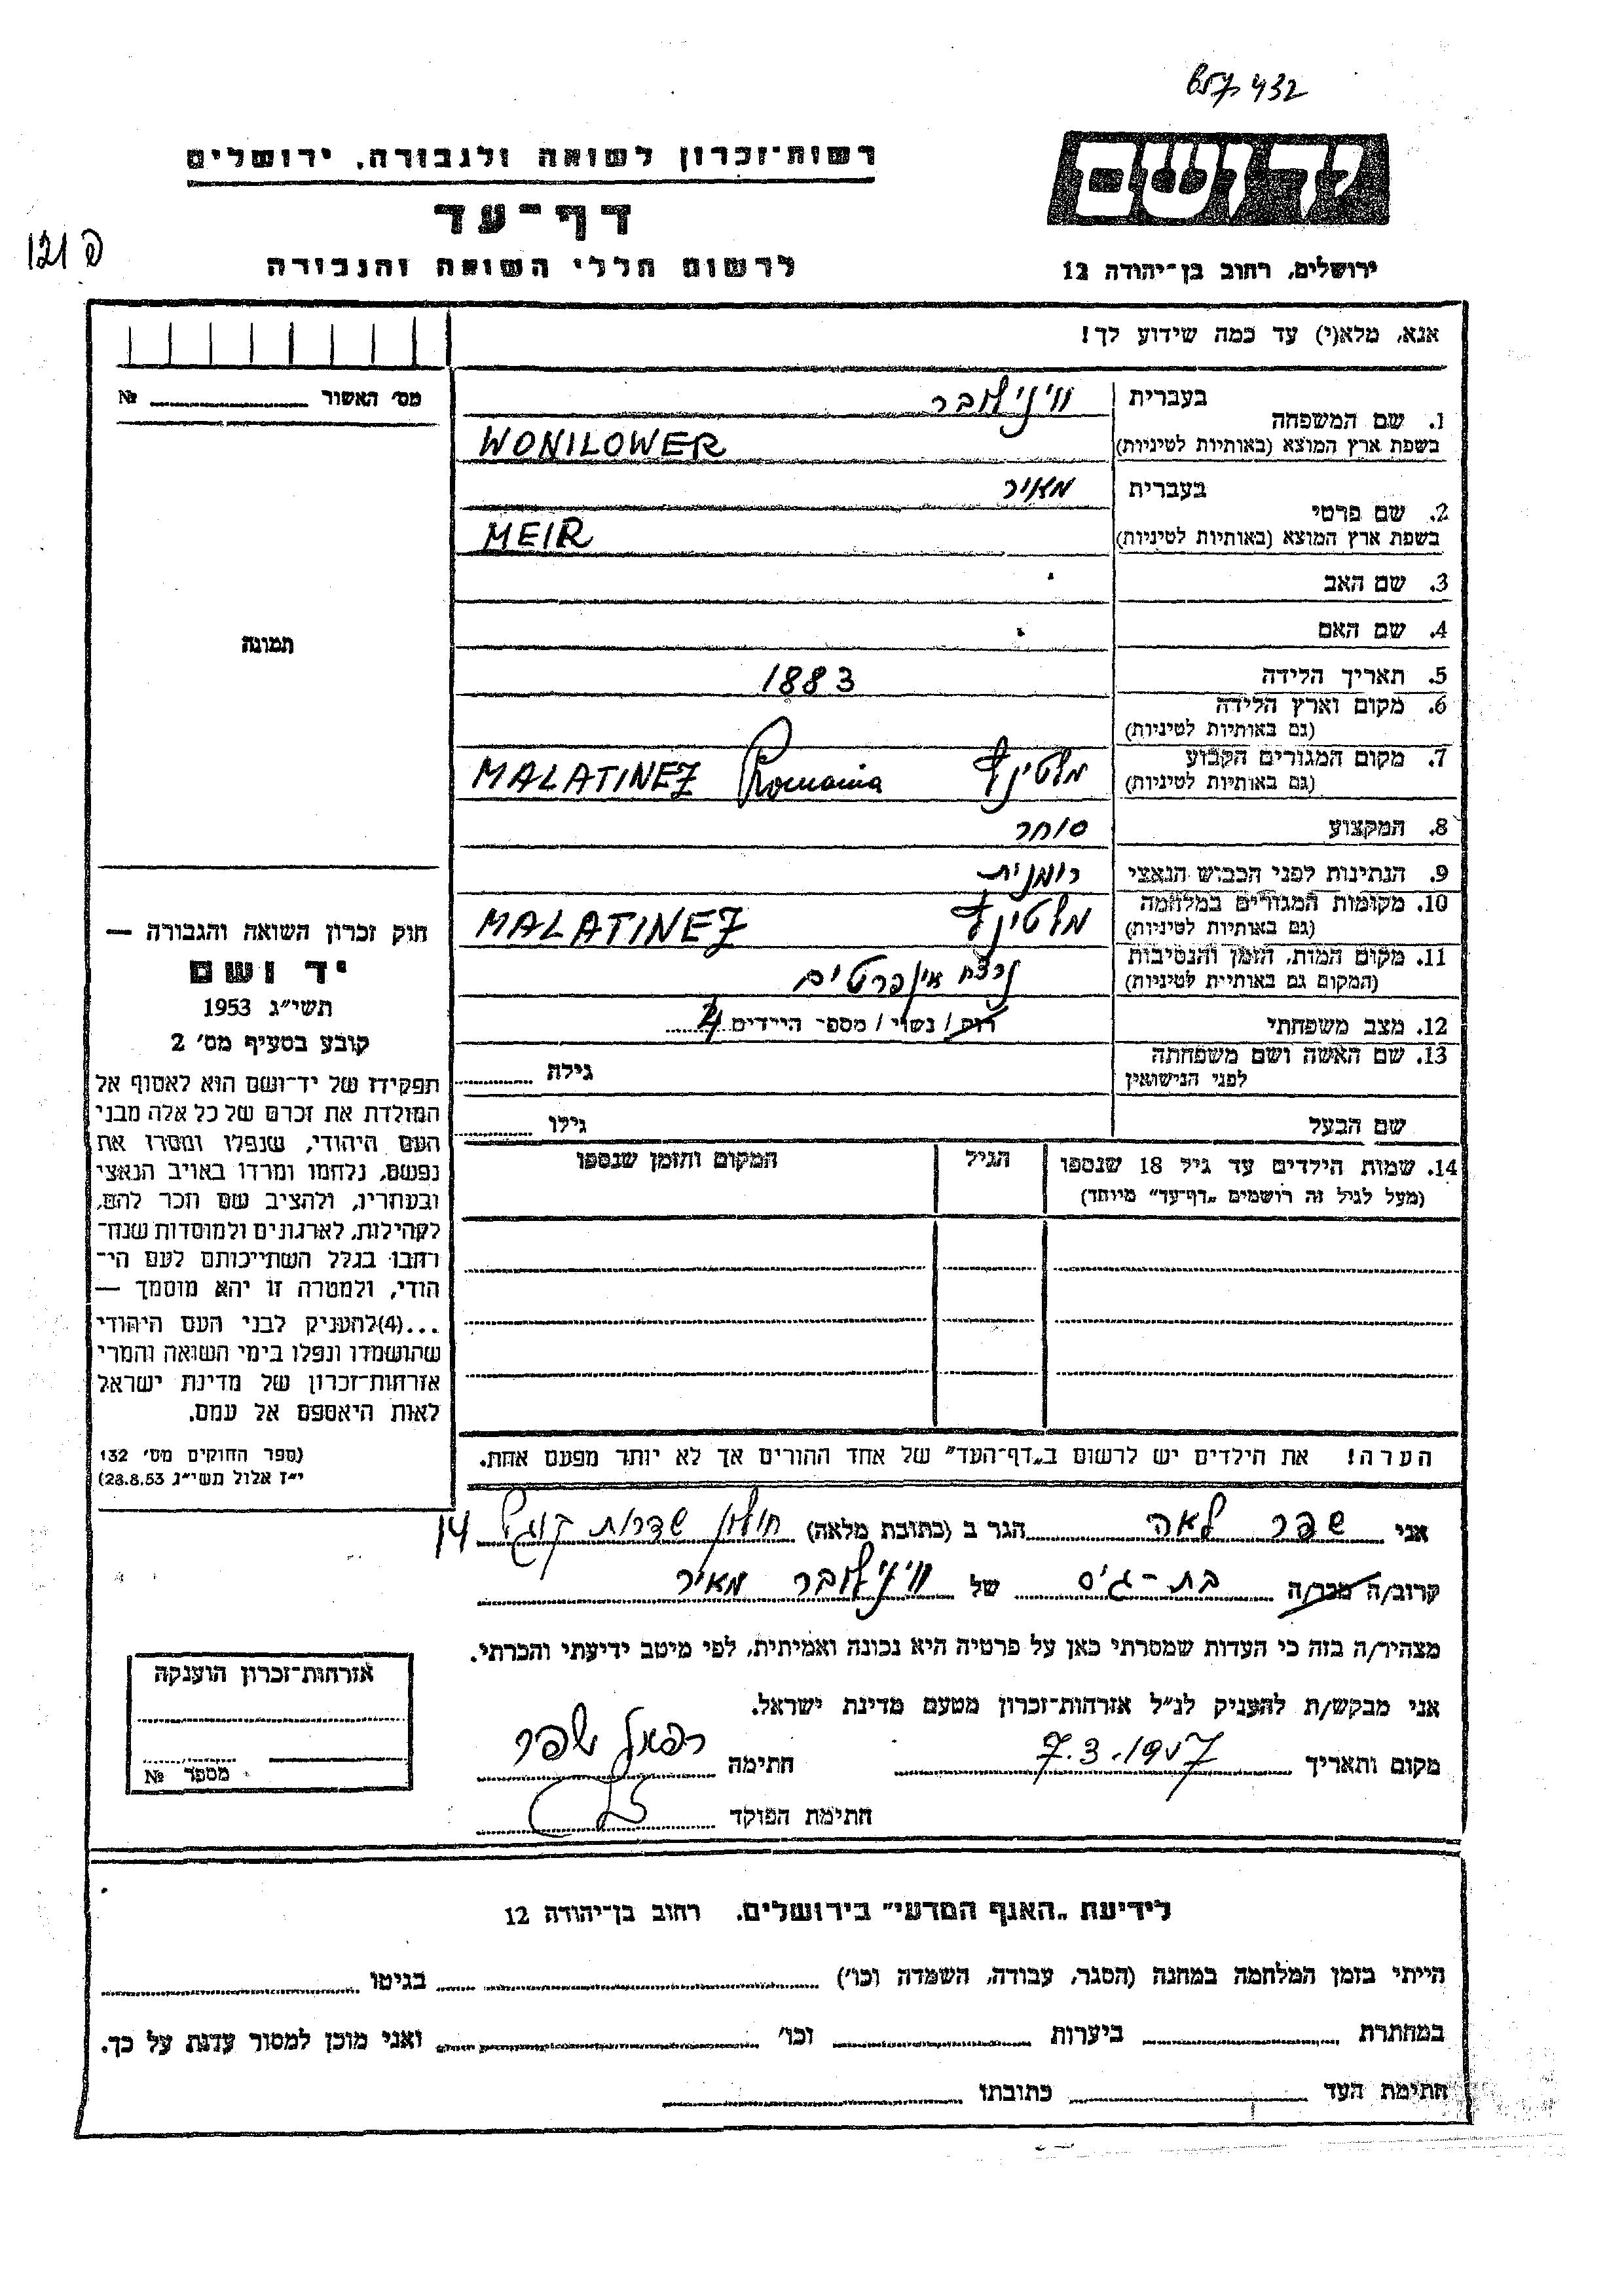 857 432
רשות־זכרון לשואה ולגבורה, ירושלים
יד ושם
דף־עד
פ 121
לרשום חללי השואה והגבורה
ירושלים, רחוב בן־יהודה 12
אנא, מלא(י) עד כמה שידוע לך!
מס׳ האשור № 
1. שם המשפחה
בעברית ווינילובר
בשפת ארץ המוצא (באותיות לטיניות) WONILOWER
2. שם פרטי
בעברית מאיר
בשפת ארץ המוצא (באותיות לטיניות) MEIR
3. שם האב
4. שם האם
תמונה
5. תאריך הלידה 1883
6. מקום וארץ הלידה
(גם באותיות לטיניות)
7. מקום המגורים הקבוע
(גם באותיות לטיניות) MALATINEZ Romania
8. המקצוע סוחר
9. הנתינות לפני הכבוש הנאצי רומנית
10. מקומות המגורים במלחמה
(גם באותיות לטיניות) MALATINEZ
11. מקום המות, הזמן והנסיבות
(המקום גם באותיות לטיניות) נרצח אין פרטים
12. מצב משפחתי רוק / נשוי / מספר הילדים
13. שם האשה ושם משפחתה
לפני הנישואין גילה
שם הבעל גילו
14. שמות הילדים עד גיל 18 שנספו הגיל המקום והזמן שנספו
(מעל לגיל זה רושמים „דף־עד״ מיוחד)
הערה! את הילדים יש לרשום ב„דף־העד״ של אחד ההורים אך לא יותר מפעם אחת.
חוק זכרון השואה והגבורה —
יד ושם
תשי״ג 1953
קובע בסעיף מס׳ 2
תפקידו של יד־ושם הוא לאסוף אל
המולדת את זכרם של כל אלה מבני
העם היהודי, שנפלו ומסרו את
נפשם, נלחמו ומרדו באויב הנאצי
ובעוזריו, ולהציב שם וזכר להם,
לקהילות, לארגונים ולמוסדות שנח־
רבו בגלל השתייכותם לעם הי־
הודי, ולמטרה זו יהא מוסמך —
...(4)להעניק לבני העם היהודי
שהושמדו ונפלו בימי השואה והמרי
אזרחות־זכרון של מדינת ישראל
לאות היאספם אל עמם.
(ספר החוקים מס׳ 132
י״ז אלול תשי״ג 28.8.53)
אני שפר לאה הגר ב (כתובת מלאה) חולון שדרות קוגל 14
קרוב/ה מכר/ה בת-גיס של ווינילובר מאיר
מצהיר/ה בזה כי העדות שמסרתי כאן על פרטיה היא נכונה ואמיתית, לפי מיטב ידיעתי והכרתי.
אני מבקש/ת להעניק לנ״ל אזרחות־זכרון מטעם מדינת ישראל.
מקום ותאריך 7.3.1957 חתימה רפאל שפר
חתימת הפוקד
אזרחות־זכרון הוענקה
מספר №
לידיעת „האגף המדעי״ בירושלים, רחוב בן־יהודה 12
הייתי בזמן המלחמה במחנה (הסגר, עבודה, השמדה וכו׳) בגיטו
במחתרת ביערות וכו׳ ואני מוכן למסור עדות על כך.
חתימת העד כתובתו